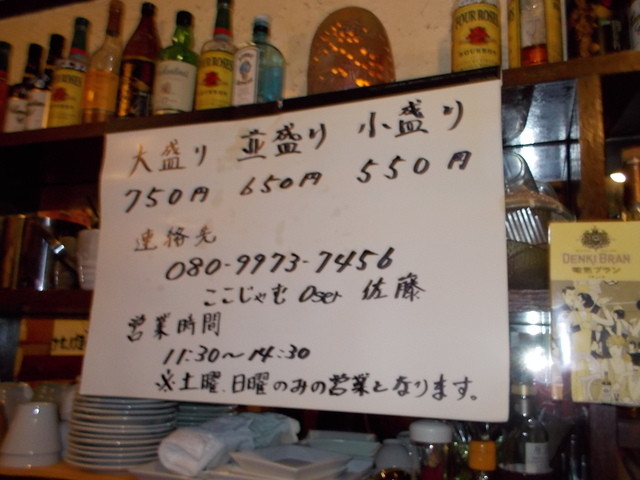 大盛り 並盛り 小盛り
750円 650円 550円
連絡先
080-9973-7456
ここじゃむ 佐藤
営業時間
11:30～14:30
※土曜、日曜のみの営業となります。
FOUR ROSES
BOURBON
DENKI BRAN
電気ブラン